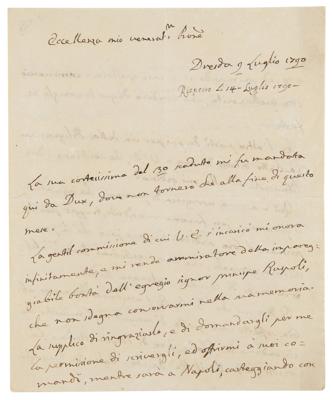 Eccellenza mio veneratⁿ. Pronē
Dresda 9 Luglio 1790
Risposto li 14 Luglio 1790
La sua cortesissima del 30 scaduto mi fu mandata
qui da Dux, dove non tornerò che alla fine di questo
mese.
La gentil commissione di cui V. E. s'incaricò mi onora
infinitamente, e mi rende ammiratore della impareg-
giabile bontà dell'egregio signor principe Ruspoli,
che non sdegna conservarmi nella sua memoria.
La supplico di ringraziarlo, e di domandargli per me
la permissione di scrivergli, ed offrirmi a' suoi co-
mandi, mentre sarà a Napoli, carteggiando con